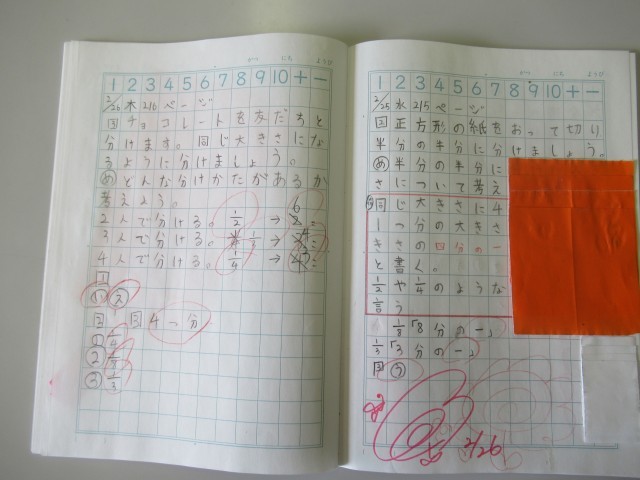 1 2 3 4 5 6 7 8 9 10 十 一
2/26 木 216 ページ
チョコレートを友だちと
分けます。同じ大きさにな
るように分けましょう。
め どんな分けかたがあるか
考えよう。
2人で分ける。1/2 → 6こ
3人で分ける。1/3 → 4こ
4人で分ける。1/4 →
1
い え
同 4つ分
①
②
③ 1/3
がつ にち ようび
1 2 3 4 5 6 7 8 9 10 十 一
2/25 水 215 ページ
正方形の紙をおって切り
半分の半分に分けましょう。
め 半分の半分に
さについて考え
同じ大きさに4
1つ分の大きさ
きさの四分の一
と書く。
1/2や1/4のような
言う
1/8 「8分の一」
1/3 「3分の一」
う
2/26